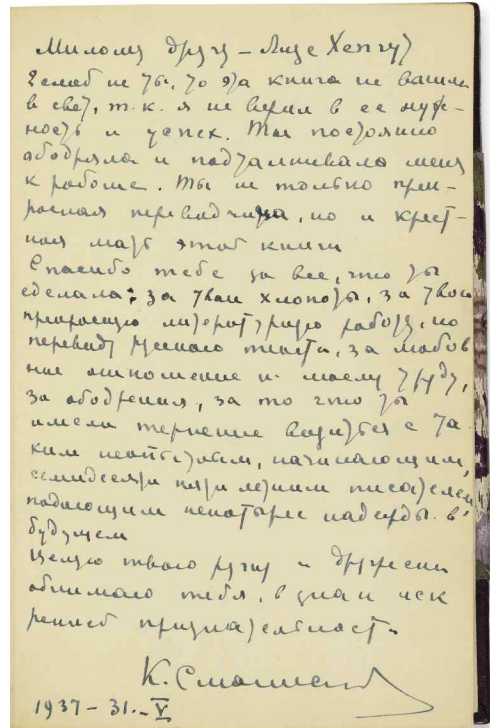 Милому другу – Лизе Хепгуд
Если б не ты, то эта книга не вышла
в свет, т.к. я не верил в ее нуж-
ность и успех. Ты постоянно
ободряла и подталкивала меня
к работе. Ты не только прек-
расная переводчица, но и крест-
ная мать этой книги
Спасибо тебе за все, что ты
сделала: за твои хлопоты, за твою
прекрасную литературную работу, по
переводу русского текста, за любов
ное отношение к моему труду,
за ободрения, за то что ты
имела терпение возиться с та
ким неопытным, начинающим,
семидесяти пяти летним писателем
подающим некоторые надежды в
будущем
Целую твою ручку и дружески
обнимаю тебя, в знак иск
ренней признательности.
К. Станиславский
1937 – 31.–V